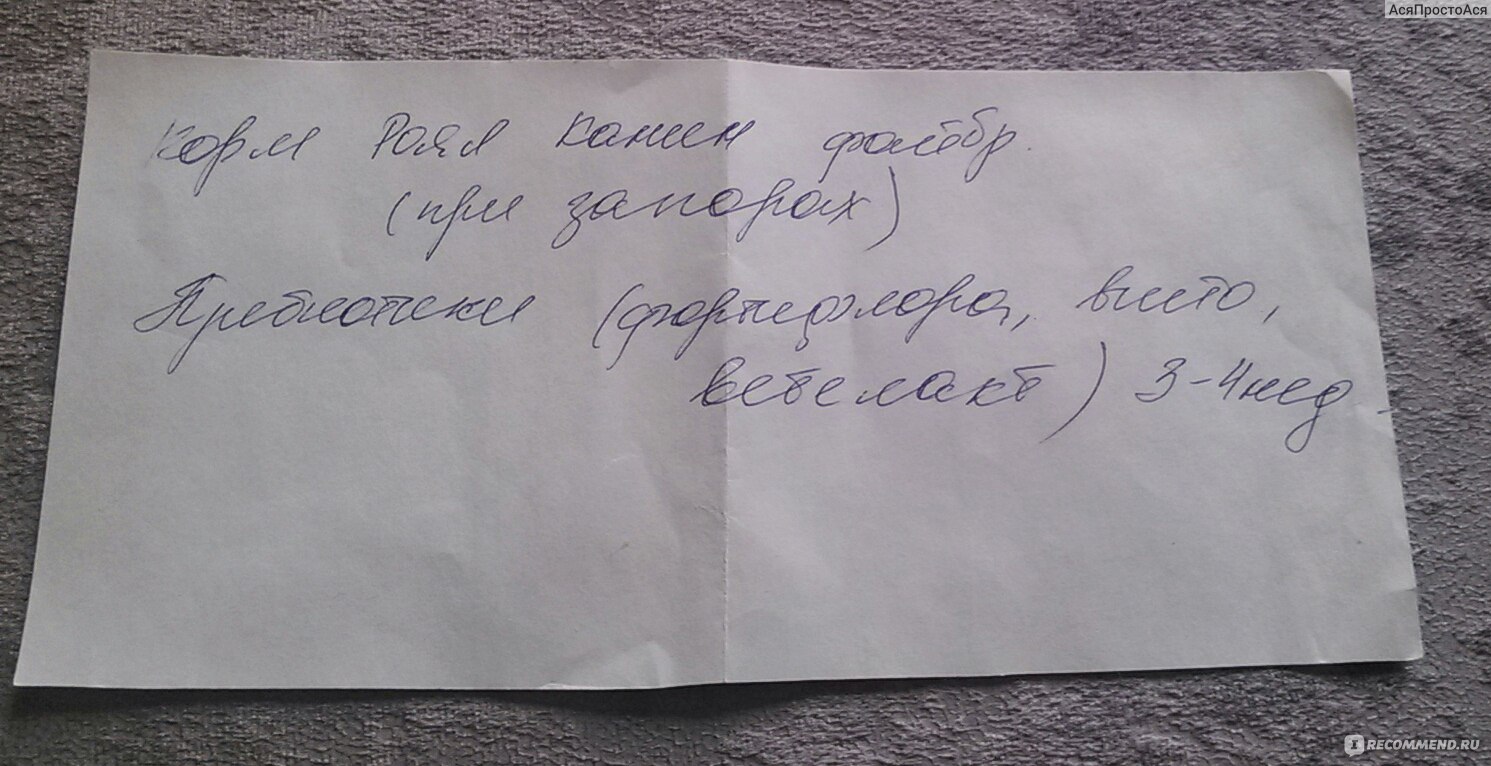 АсяПростоАся
Корм Роял Канин файбр.
(при запорах)
Пребиотики (фортифлора, вито,
ветелакт) 3-4 нед.
IRECOMMEND.RU